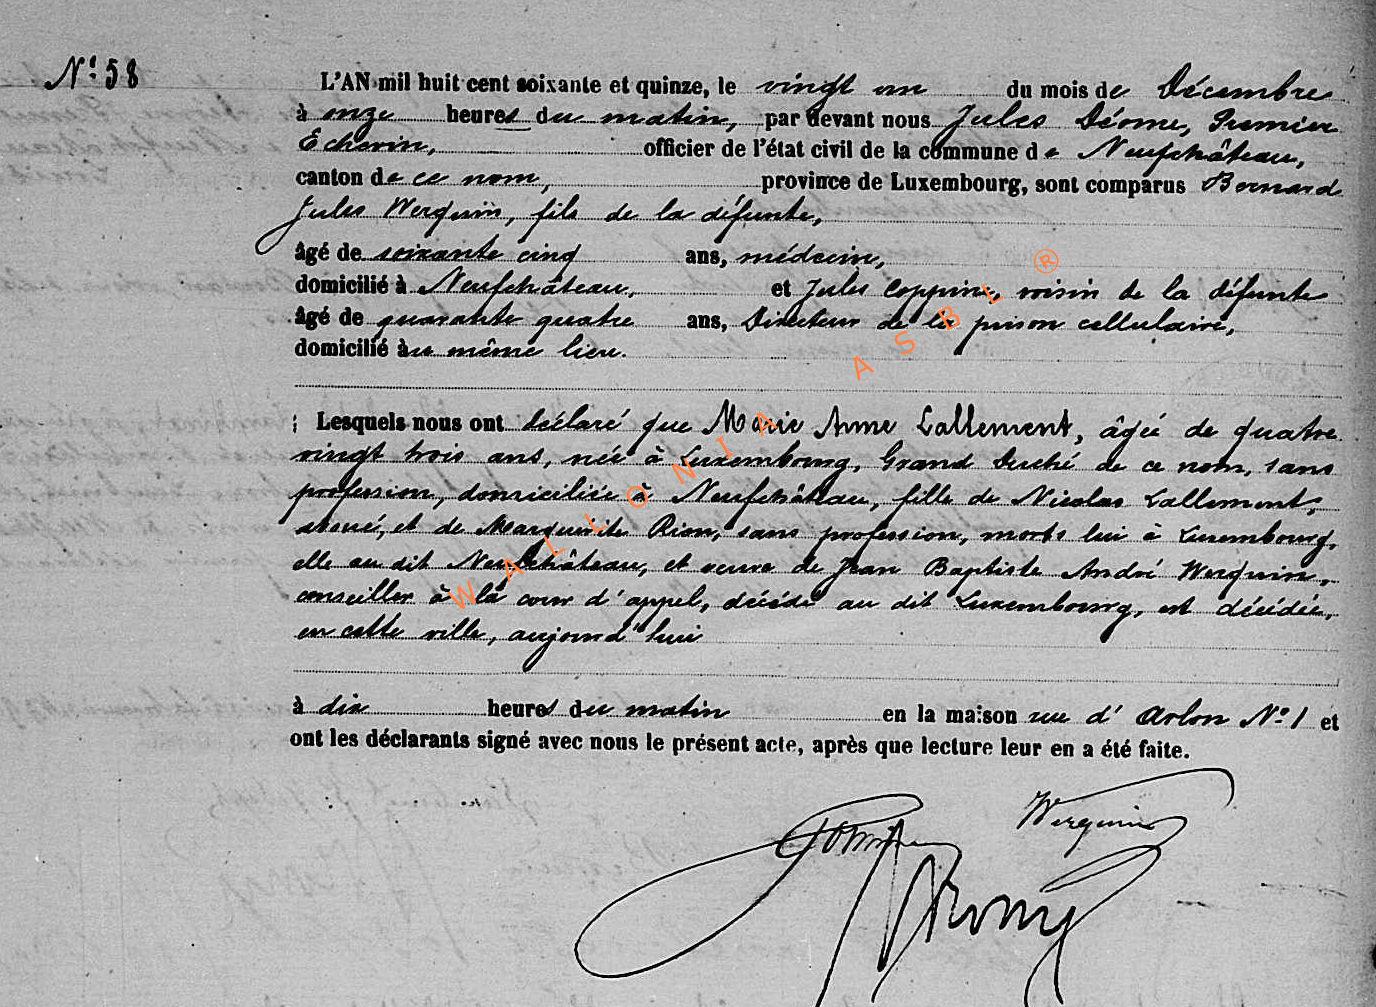 N° 58
L'AN mil huit cent soixante et quinze, le vingt un du mois de Décembre
à onze heures du matin, par devant nous Jules Déome, Premier
Echevin, officier de l'état civil de la commune de Neufchâteau,
canton de ce nom, province de Luxembourg, sont comparus Bernard
Jules Werquin, fils de la défunte,
âgé de soixante cinq ans, médecin,
domicilié à Neufchâteau, et Jules Coppin, voisin de la défunte
âgé de quarante quatre ans, Directeur de la prison cellulaire,
domicilié au même lieu.
Lesquels nous ont déclaré que Marie Anne Lallement, âgée de quatre
vingt trois ans, née à Luxembourg, Grand Duché de ce nom, sans
profession, domiciliée à Neufchâteau, fille de Nicolas Lallement,
avoué, et de Marguerite Rion, sans profession, morts lui à Luxembourg,
elle au dit Neufchâteau, et veuve de Jean Baptiste André Werquin,
conseiller à la cour d'appel, décédé au dit Luxembourg, est décédée,
en cette ville, aujourd'hui
à dix heures du matin en la maison rue d'Arlon N° 1 et
ont les déclarants signé avec nous le présent acte, après que lecture leur en a été faite.
Werquin
WALLONIA ASBL ®